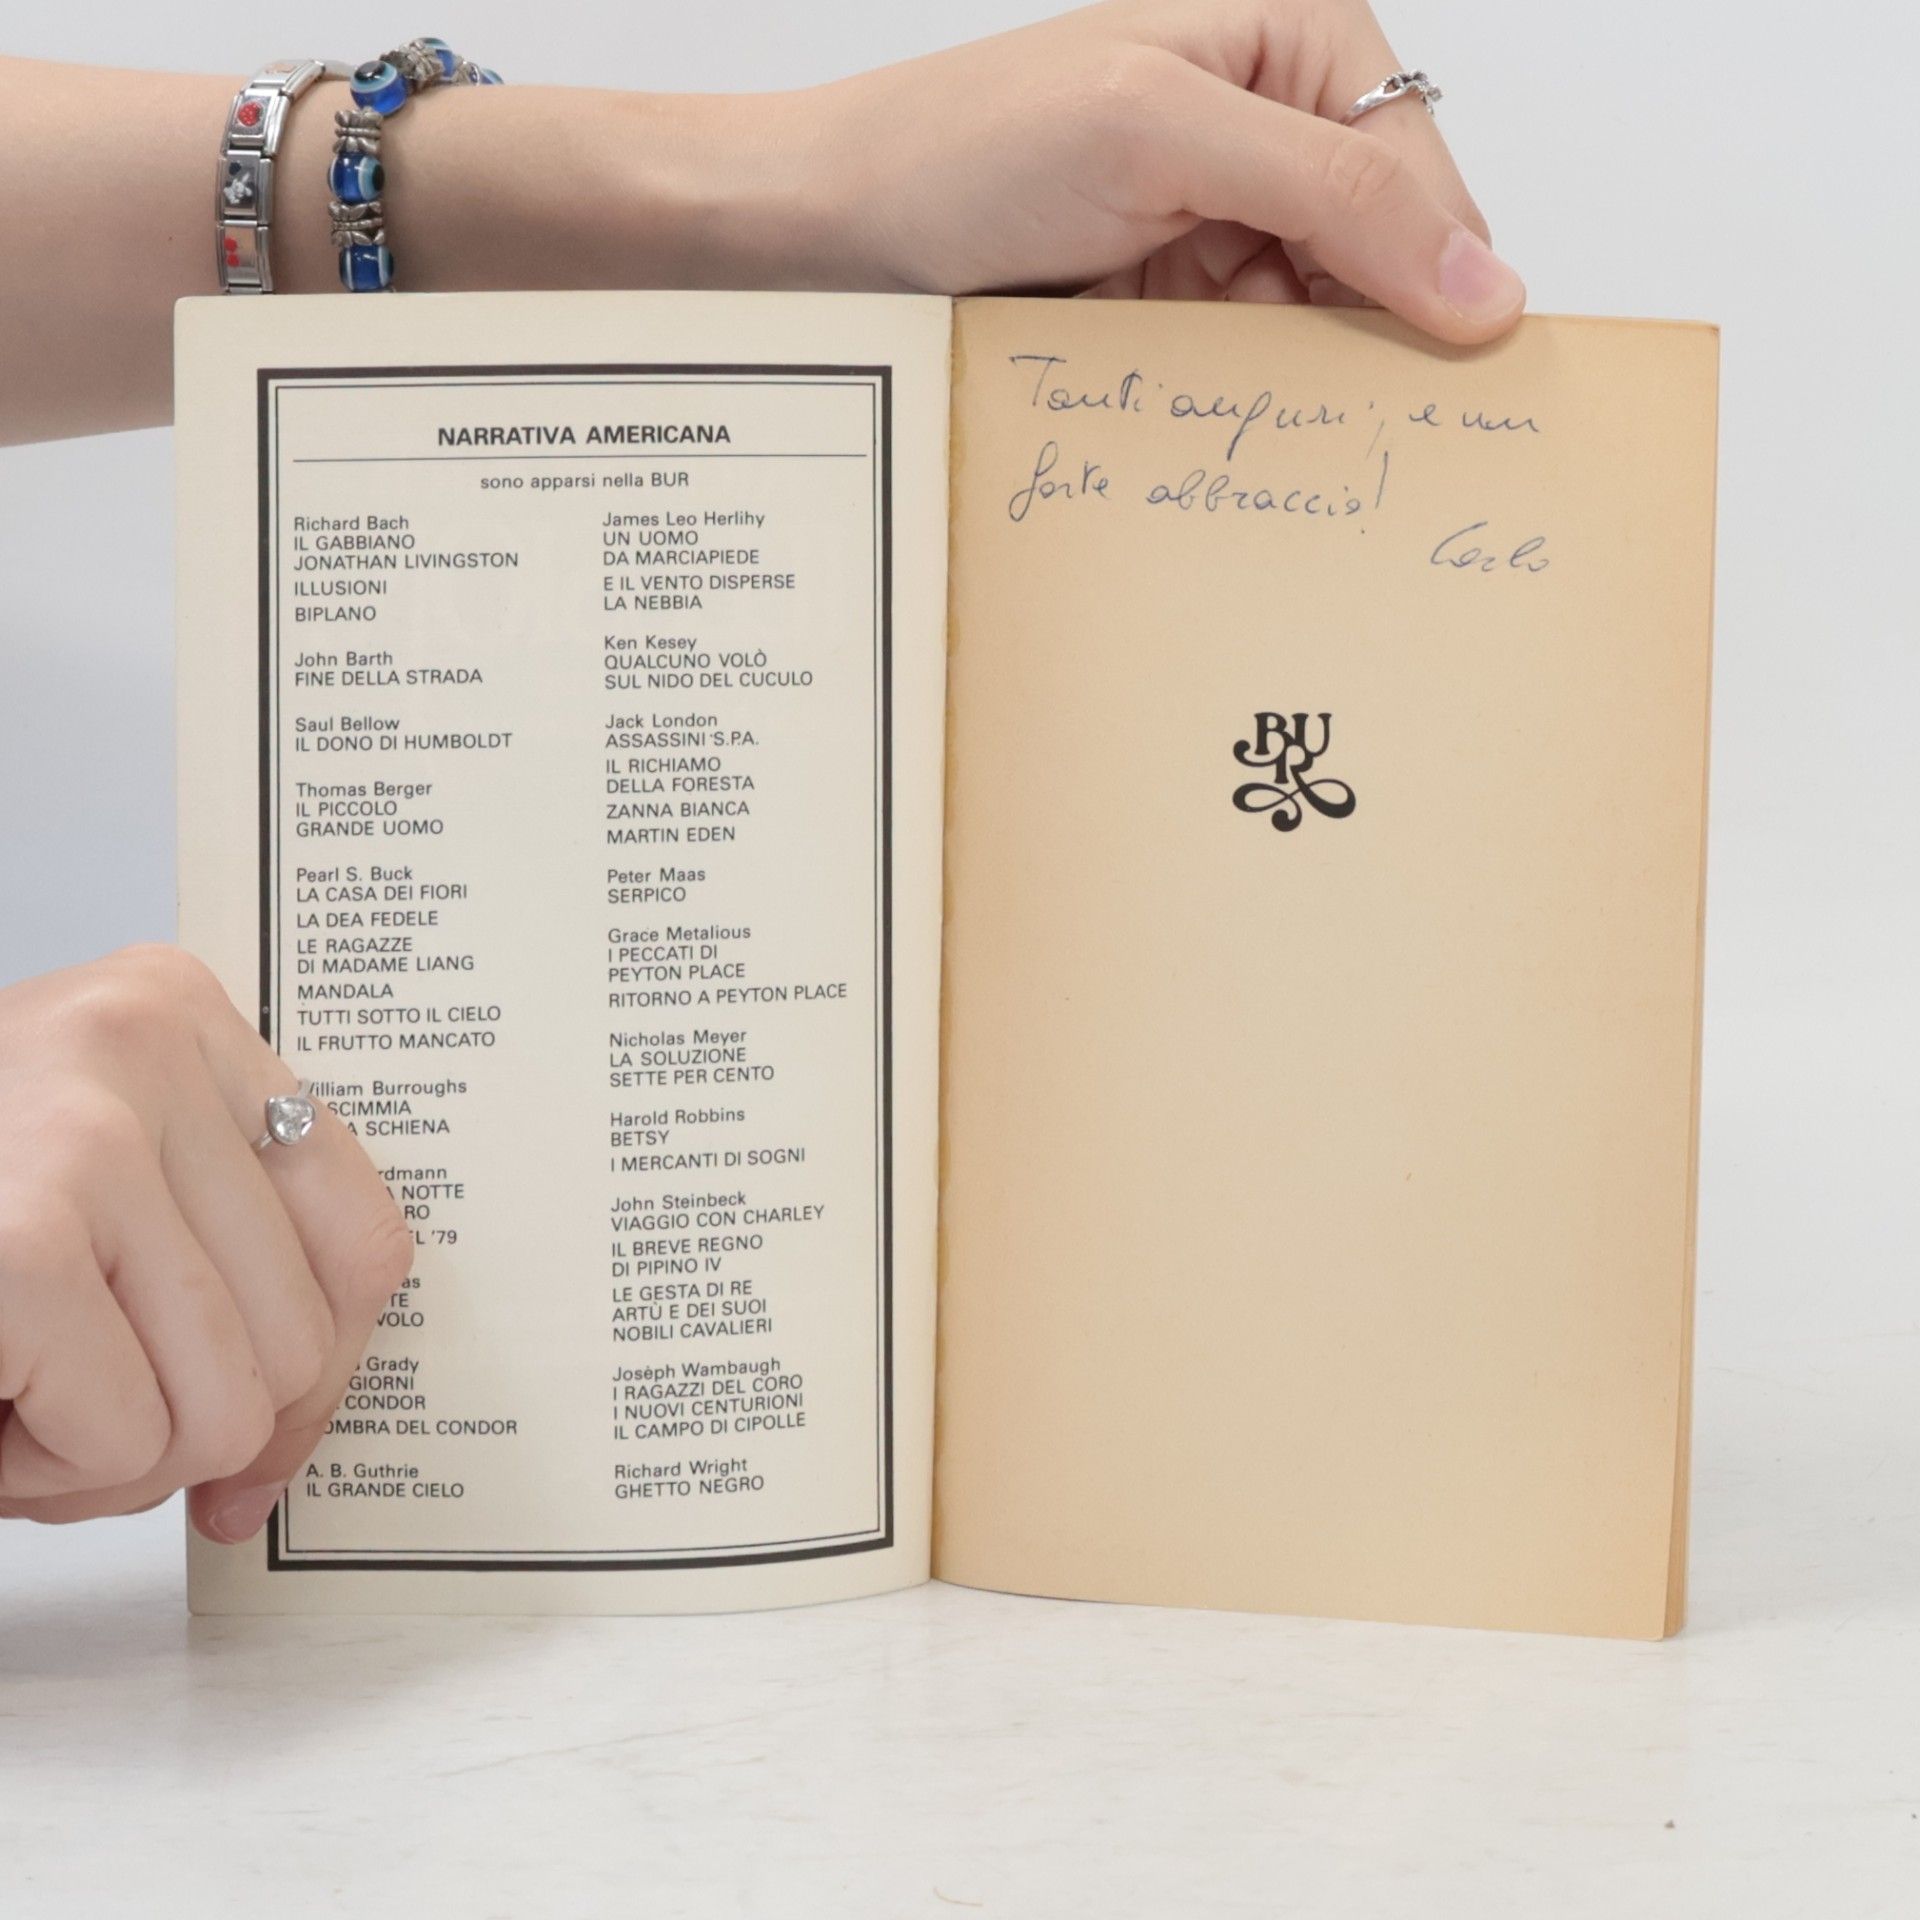 NARRATIVA AMERICANA
sono apparsi nella BUR
Richard Bach
IL GABBIANO
JONATHAN LIVINGSTON
ILLUSIONI
BIPLANO
John Barth
FINE DELLA STRADA
Saul Bellow
IL DONO DI HUMBOLDT
Thomas Berger
IL PICCOLO
GRANDE UOMO
Pearl S. Buck
LA CASA DEI FIORI
LA DEA FEDELE
LE RAGAZZE
DI MADAME LIANG
MANDALA
TUTTI SOTTO IL CIELO
IL FRUTTO MANCATO
Burroughs
SCIMMIA
SCHIENA
NOTTE
'79
Grady
GIORNI
CONDOR
DEL CONDOR
A. B. Guthrie
IL GRANDE CIELO
James Leo Herlihy
UN UOMO
DA MARCIAPIEDE
E IL VENTO DISPERSE
LA NEBBIA
Ken Kesey
QUALCUNO VOLÒ
SUL NIDO DEL CUCULO
Jack London
ASSASSINI S.P.A.
IL RICHIAMO
DELLA FORESTA
ZANNA BIANCA
MARTIN EDEN
Peter Maas
SERPICO
Grace Metalious
I PECCATI DI
PEYTON PLACE
RITORNO A PEYTON PLACE
Nicholas Meyer
LA SOLUZIONE
SETTE PER CENTO
Harold Robbins
BETSY
I MERCANTI DI SOGNI
John Steinbeck
VIAGGIO CON CHARLEY
IL BREVE REGNO
DI PIPINO IV
LE GESTA DI RE
ARTÙ E DEI SUOI
NOBILI CAVALIERI
Josèph Wambaugh
I RAGAZZI DEL CORO
I NUOVI CENTURIONI
IL CAMPO DI CIPOLLE
Richard Wright
GHETTO NEGRO
Tanti auguri, e un
forte abbraccio!
Carlo
BUR